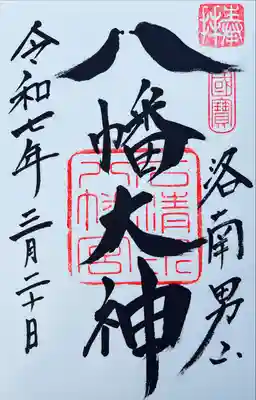 奉拝
國寶
洛南男山
八幡大神
石清水八幡宮
令和七年 三月二十日